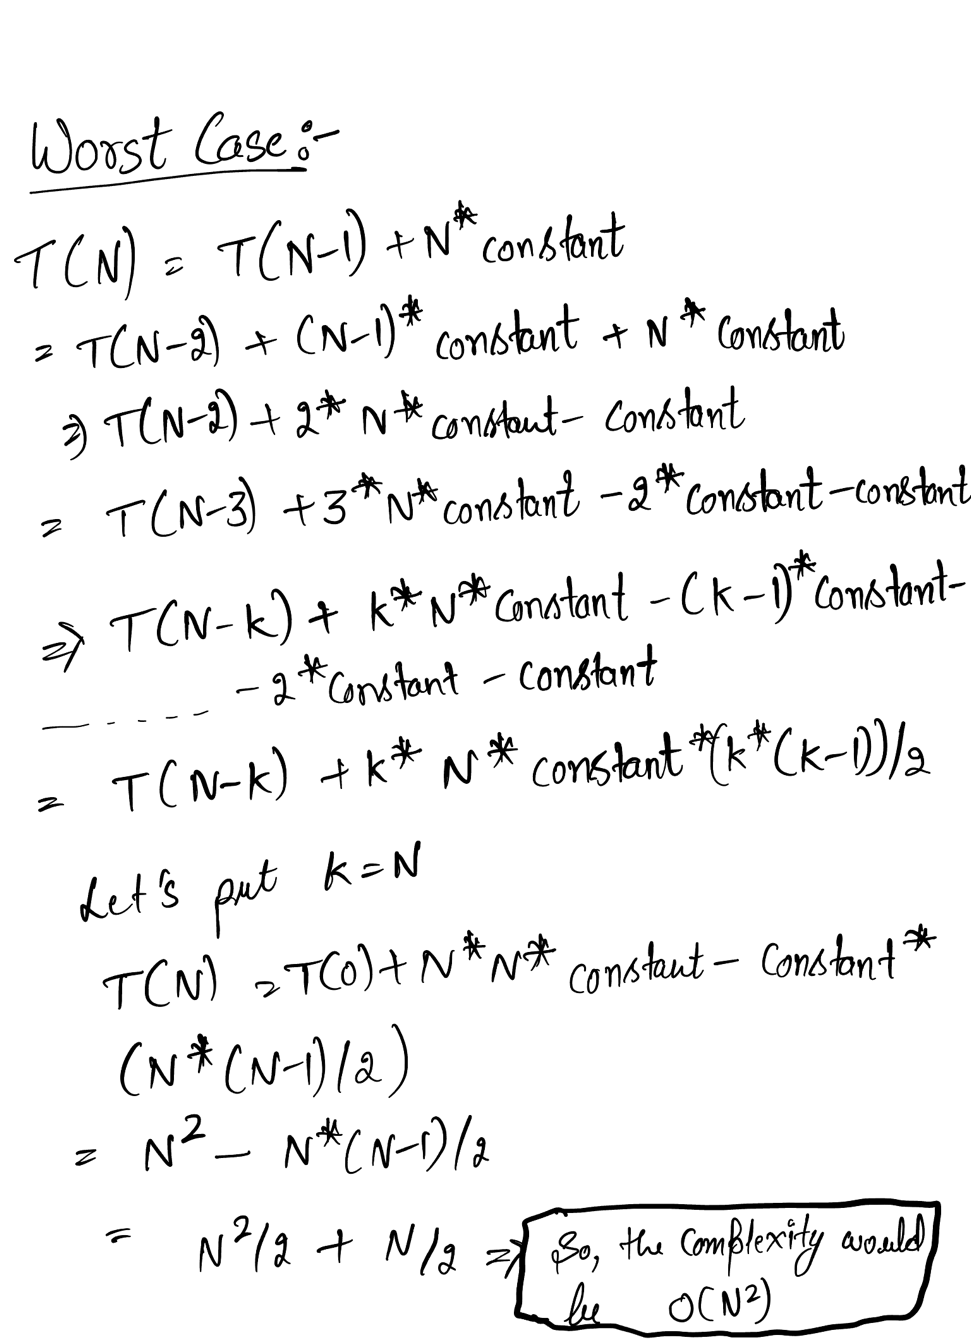 Worst Case:-
T(N) = T(N-1) + N* constant
= T(N-2) + (N-1)* constant + N * Constant
=) T(N-2) + 2* N* constant - Constant
= T(N-3) + 3* N* constant - 2* constant - constant
=> T(N-k) + k* N* Constant - (k-1)* Constant -
------- - 2* Constant - constant
= T(N-k) + k* N* constant *(k*(k-1))/2
Let's put k=N
T(N) = T(0) + N* N* constant - Constant *
(N* (N-1)/2)
= N² - N*(N-1)/2
= N²/2 + N/2 => So, the Complexity would
be O(N²)